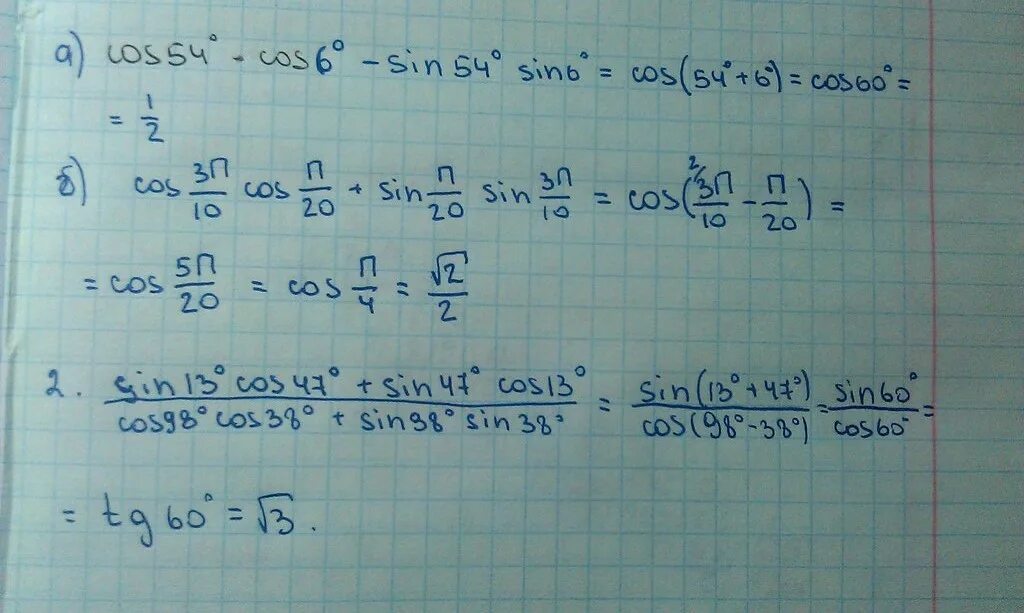 а) cos54° · cos6° - sin54° sin6° = cos(54°+6°) = cos60° =
= 1/2
б) cos 3П/10 cos П/20 + sin П/20 sin 3П/10 = cos(²⁄3П/10 - П/20) =
= cos 5П/20 = cos П/4 = √2/2
2. (sin13° cos47° + sin47° cos13°)/(cos98° cos38° + sin98° sin38°) = sin(13°+47°)/cos(98°-38°) = sin60°/cos60° =
= tg60° = √3.